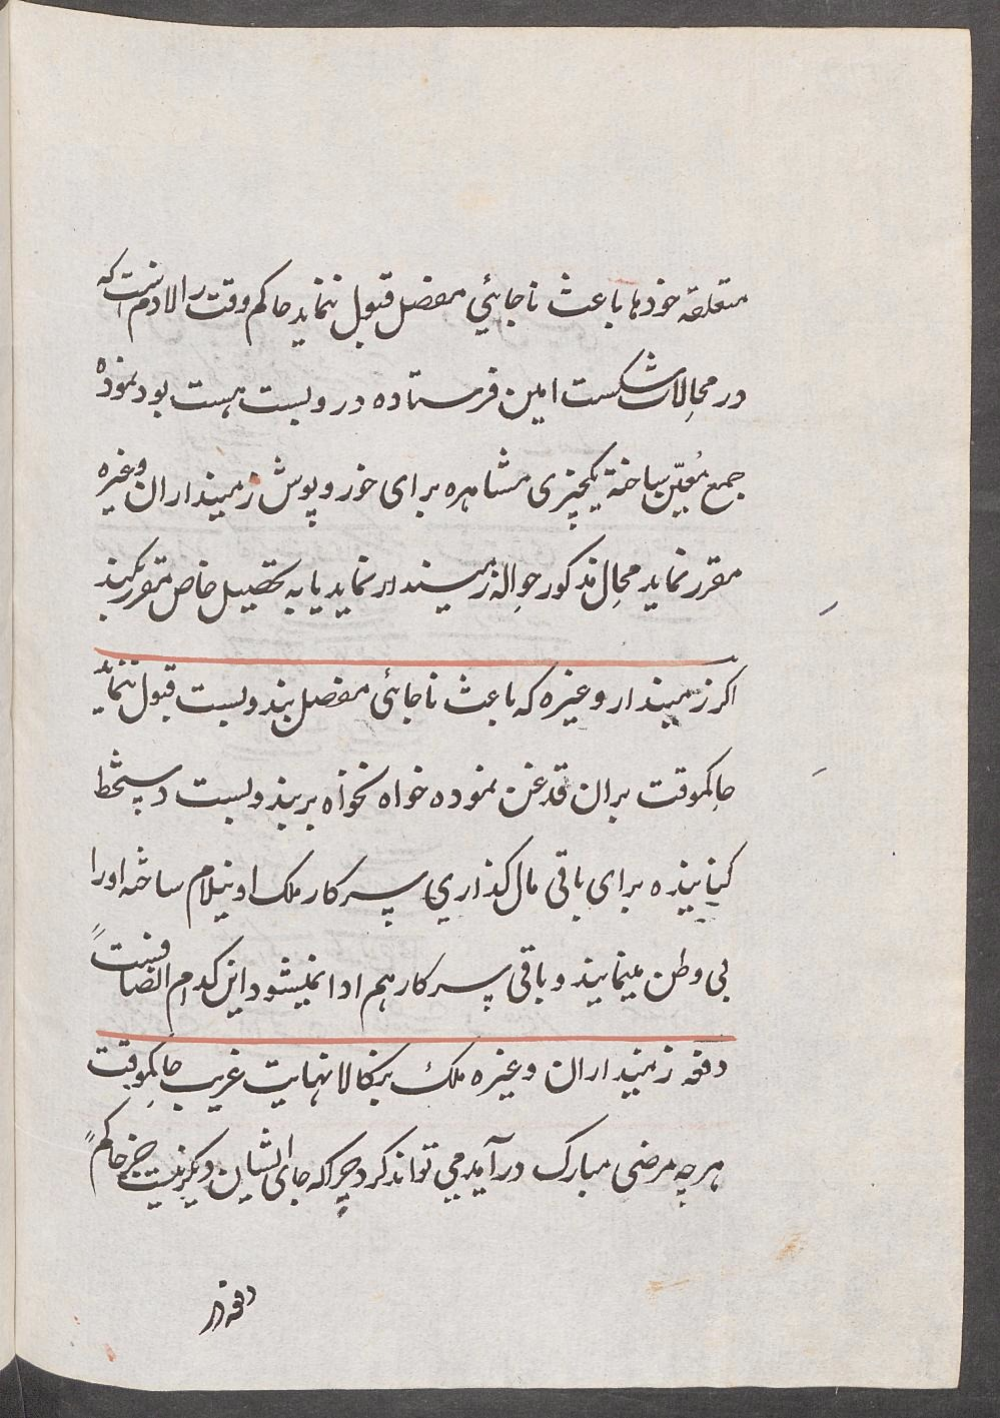 متعلقه خودها باعث ناجائي مفصل قبول ننمايد حاكم وقت را لازم است كه
در محالات شكست امين فرستاده در و بست هست بود نموده
جمع معيّن ساخته يكچيزى مشاهره براى خور و پوش زمينداران وغيره
مقرر نمايد محال مذكور حواله زميندار نمايد يا به تحصيل خاص مقرر بكند
اكر زميندار وغيره كه باعث ناجائى مفصل بندوبست قبول ننمايد
حاكموقت بران قدغن نموده خواه نخواه بر بندوبست دسپتخط
كنانيده براى باقى مال كذاري سركار ملك او نيلام ساخته او را
بى وطن مينمايند و باقى سركار هم ادا نميشود اين كدام انصافست
دفعه زمينداران وغيره ملك بنكالا نهايت غريب حاكموقت
هرچه مرضى مبارك در آيد مي تواند كرد چراكه جاى ايشان ديكر نيست جز حاكم
دفعه